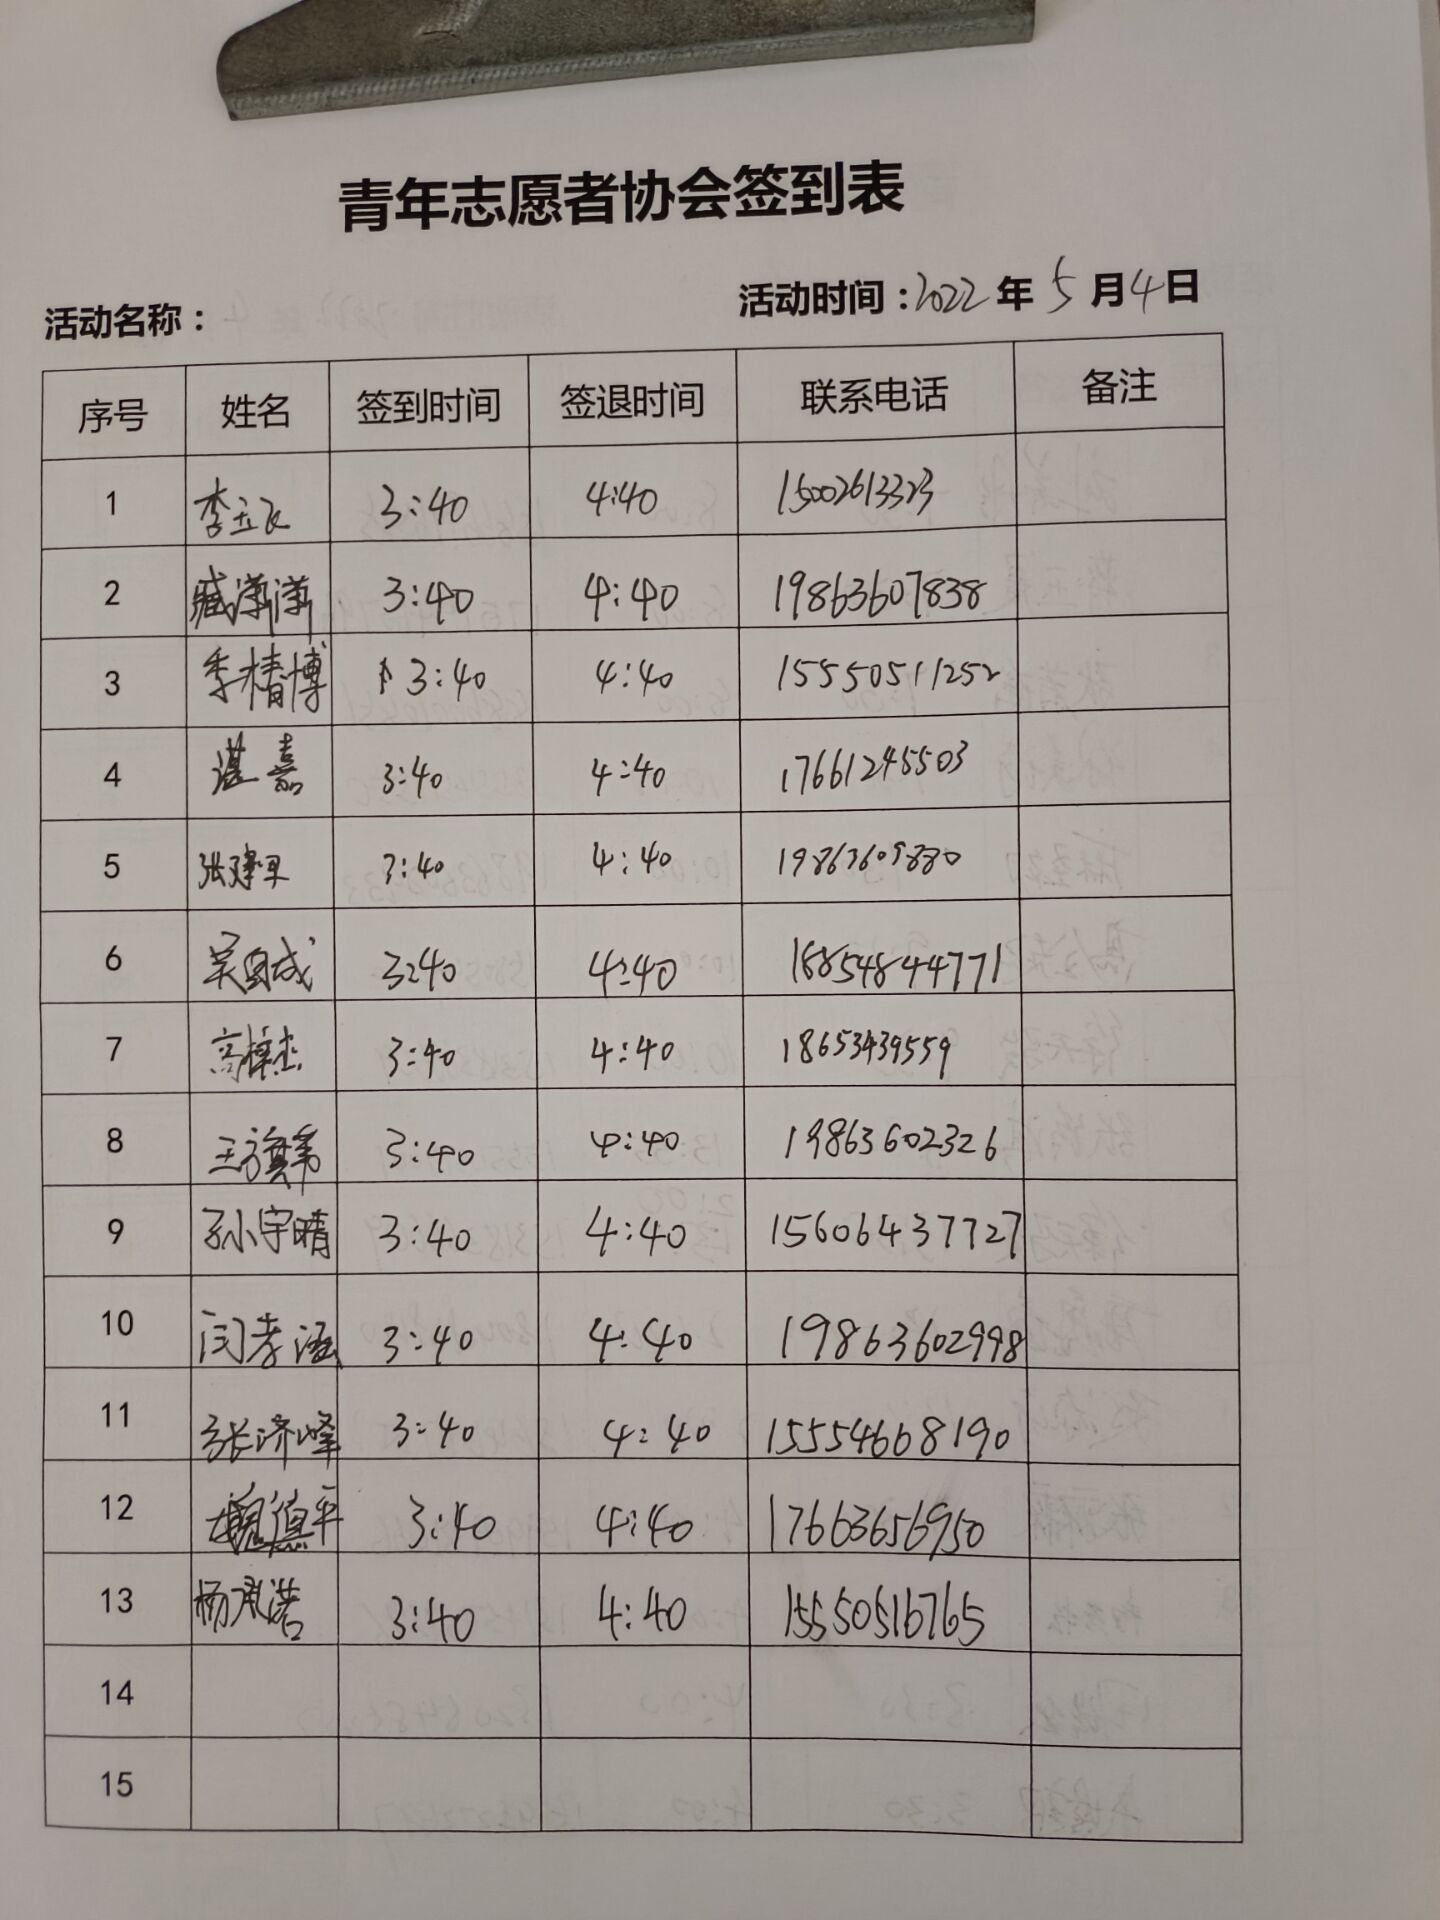 青年志愿者协会签到表
活动名称： 活动时间：2022年5月4日
序号 姓名 签到时间 签退时间 联系电话 备注
1 李立飞 3:40 4:40 15002613323
2 臧潇潇 3:40 4:40 19863607838
3 季楮博 3:40 4:40 15550511252
4 湛嘉 3:40 4:40 17661245503
5 张建 3:40 4:40 19863609880
6 吴自成 3:40 4:40 18854844771
7 高梓杰 3:40 4:40 18653439559
8 王旗 3:40 4:40 19863602326
9 孙宇晴 3:40 4:40 15606437727
10 闫孝涵 3:40 4:40 19863602998
11 张济峰 3:40 4:40 15554668190
12 魏德平 3:40 4:40 17663656950
13 杨承浩 3:40 4:40 15550516765
14
15